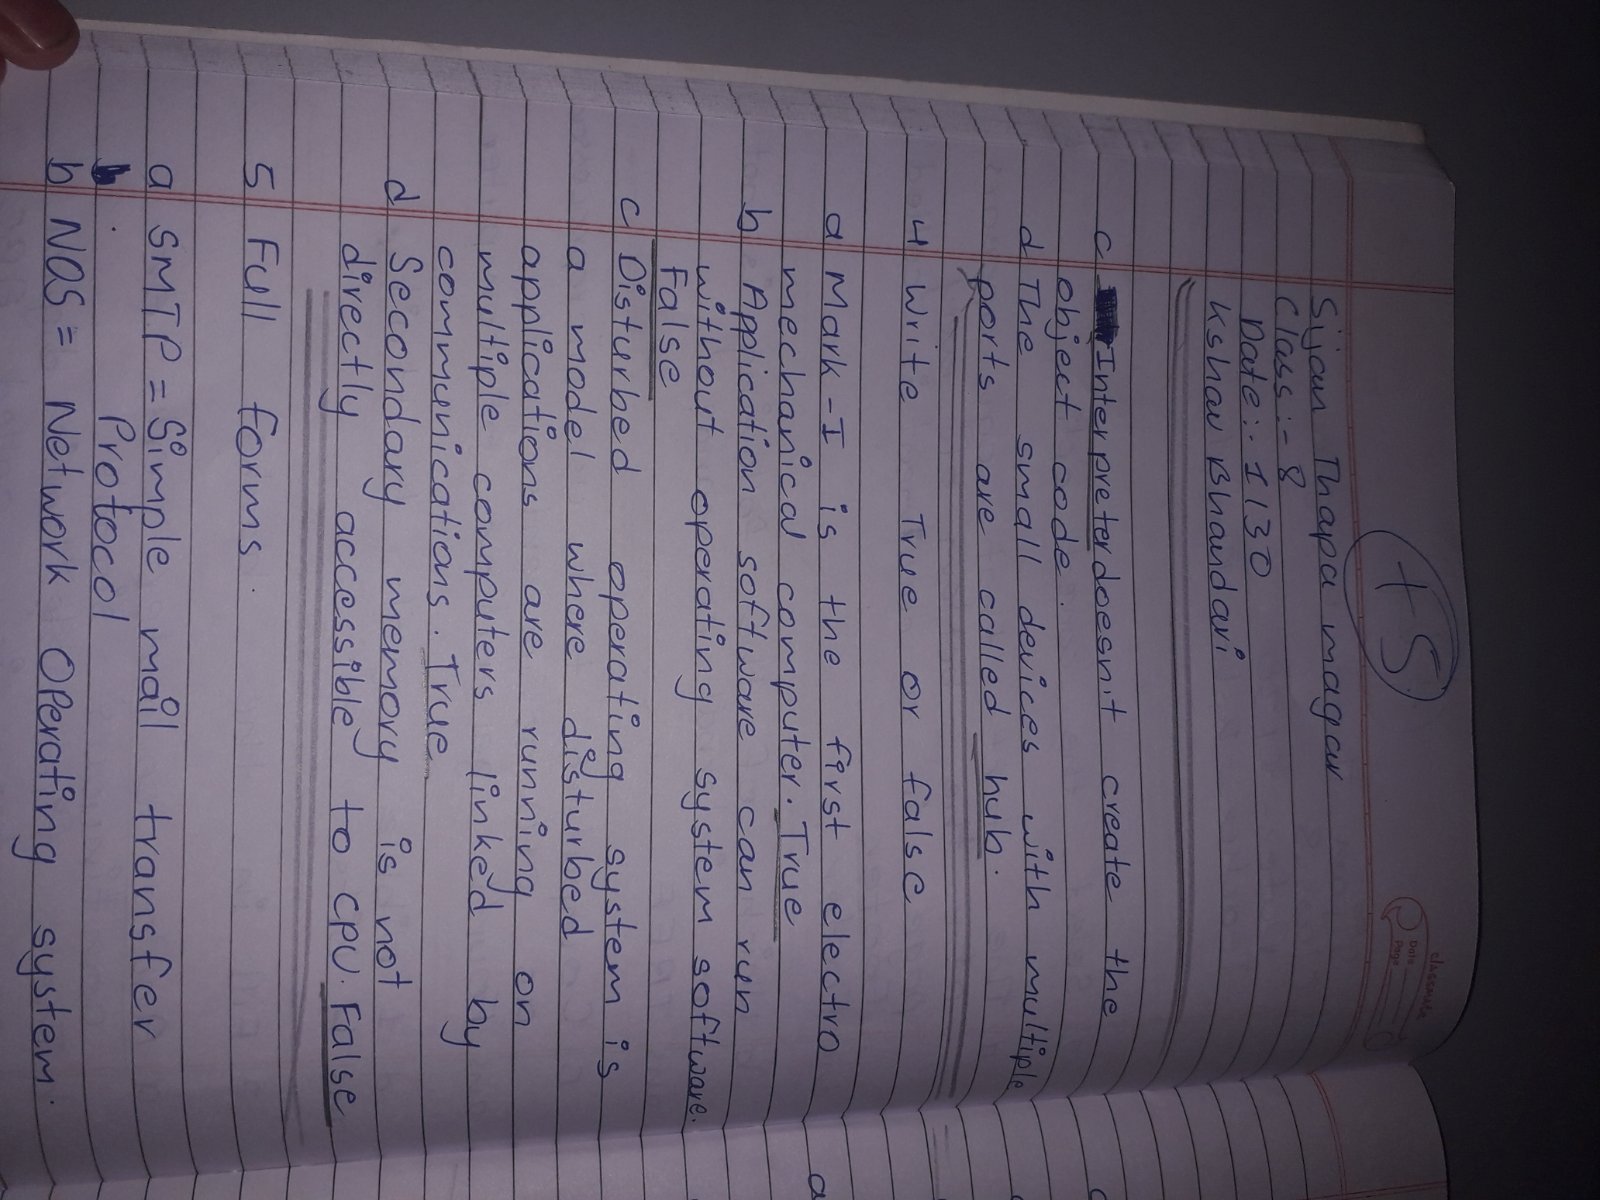 +5
classmate
Date
Page
Sijan Thapa magar
Class:- 8
Date:- 1/30
Kshav Bhandari
c Interpreter doesn't create the
object code.
d The small devices with multiple
ports are called hub.
4 Write True or false
a Mark-I is the first electro
mechanical computer. True
b Application software can run
without operating system software.
False
c Disturbed operating system is
a model where disturbed
applications are running on
multiple computers linked by
communications. True
d Secondary memory is not
directly accessible to cpu. False
5 Full forms.
a SMTP = Simple mail transfer
Protocol
b NOS = Network Operating system.